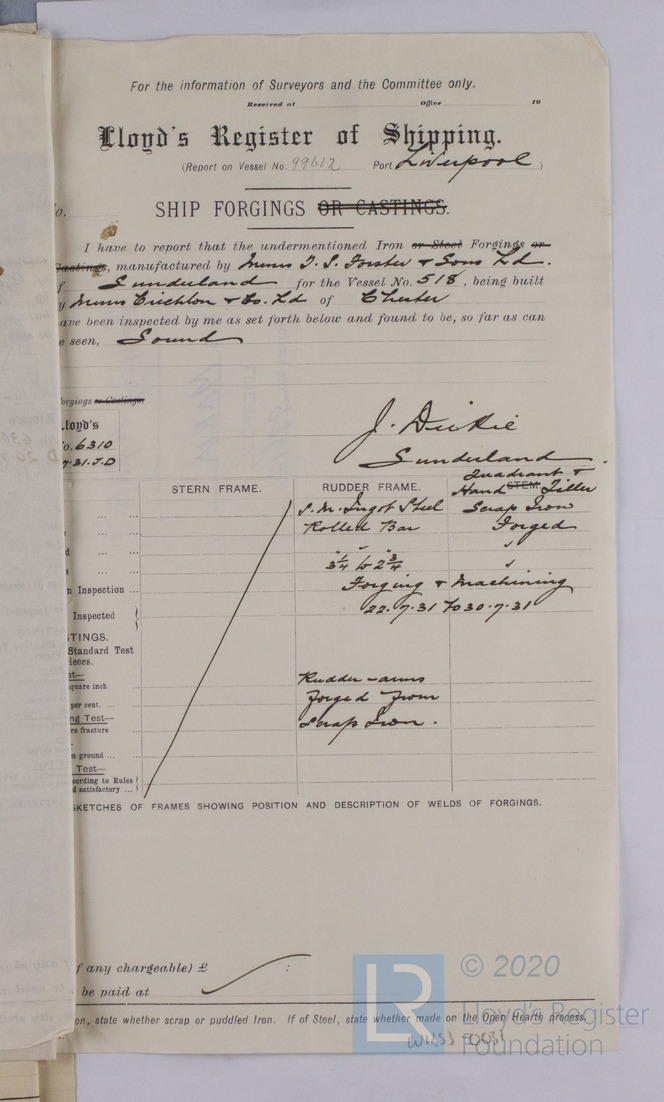 For the information of Surveyors and the Committee only.
Received at Office 19
Lloyd's Register of Shipping.
(Report on Vessel No. 99612 Port Liverpool )
o. SHIP FORGINGS OR CASTINGS.
I have to report that the undermentioned Iron or Steel Forgings or
Castings, manufactured by Messrs T. S. Forster & Sons Ld.
f Sunderland for the Vessel No. 518, being built
y Messrs Crichton & Co. Ld of Chester
ave been inspected by me as set forth below and found to be, so far as can
e seen, Sound
orgings or Castings.
Lloyd's
o. 6310
7.31. J.D
J. Dickie
Sunderland.
Quadrant &
STERN FRAME. RUDDER FRAME. Hand STEM. Tiller
S.M. Ingot Steel Scrap Iron
Rolled Bar Forged
3 1/4" to 2 3/4"
n Inspection ... Forging & Machining
Inspected 22.7.31 to 30.7.31
TINGS.
Standard Test
ieces.
st—
quare inch Rudder-arms
per cent. ... Forged from
ng Test—
re fracture Scrap Iron.
m ground ...
Test—
cording to Rules
d satisfactory ...
SKETCHES OF FRAMES SHOWING POSITION AND DESCRIPTION OF WELDS OF FORGINGS.
f any chargeable) £ :
be paid at
on, state whether scrap or puddled Iron. If of Steel, state whether made on the Open Hearth process.
LR
© 2020
Lloyd's Register
Foundation
W1253-0081